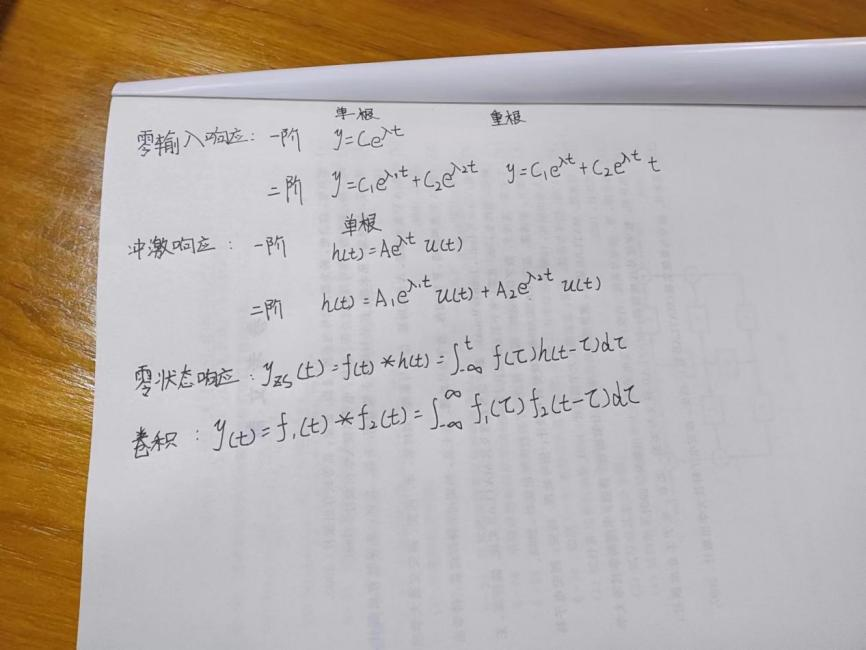 单根 重根
零输入响应: 一阶 y=Ce^λt
二阶 y=C₁e^λ₁t+C₂e^λ₂t y=C₁e^λt+C₂e^λt t
单根
冲激响应: 一阶 h(t)=Ae^λt u(t)
二阶 h(t)=A₁e^λ₁t u(t)+A₂e^λ₂t u(t)
零状态响应: y_zs(t)=f(t)*h(t)=∫_-∞^t f(τ)h(t-τ)dτ
卷积: y(t)=f₁(t)*f₂(t)=∫_-∞^∞ f₁(τ)f₂(t-τ)dτ